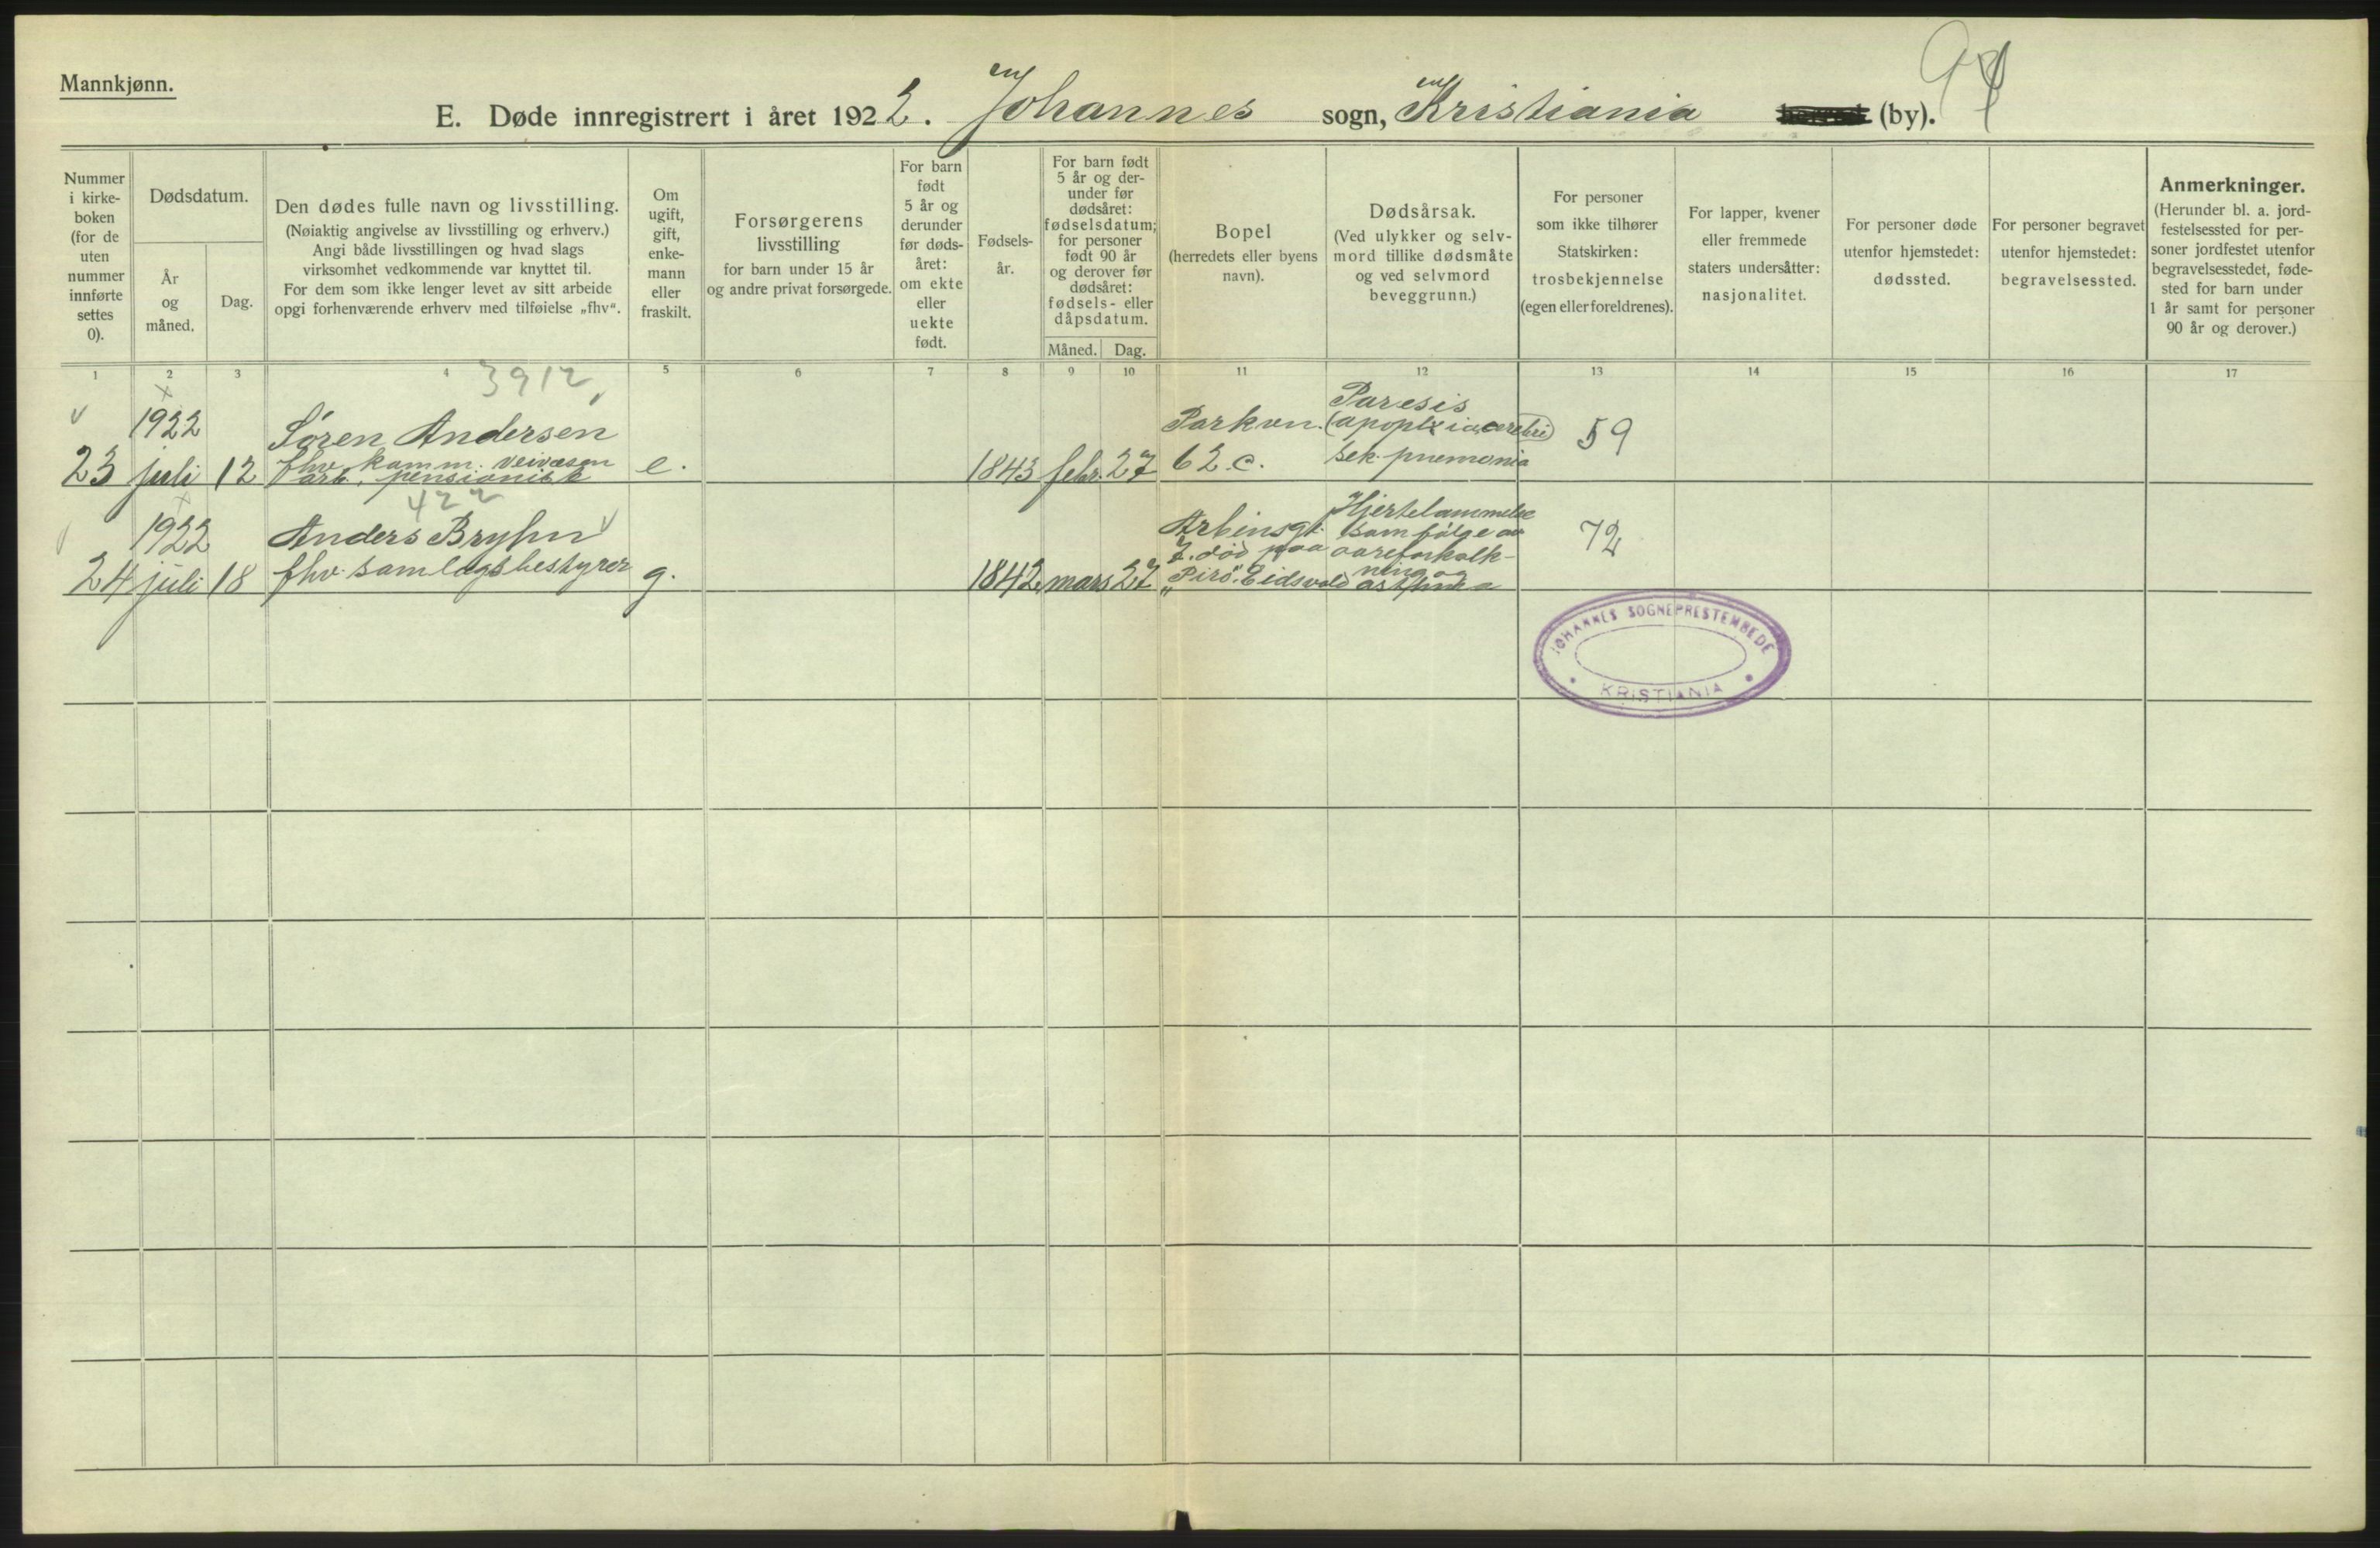 Mannkjønn.
E. Døde innregistrert i året 1922. Johannes sogn, Kristiania (by).
Nummer
i kirke-
boken
(for de
uten
nummer
innførte
settes
0).
Dødsdatum.
År
og
måned.
Dag.
Den dødes fulle navn og livsstilling.
(Nøiaktig angivelse av livsstilling og erhverv.)
Angi både livsstillingen og hvad slags
virksomhet vedkommende var knyttet til.
For dem som ikke lenger levet av sitt arbeide
opgi forhenværende erhverv med tilføielse „fhv“.
Om
ugift,
gift,
enke-
mann
eller
fraskilt.
Forsørgerens
livsstilling
for barn under 15 år
og andre privat forsørgede.
For barn
født
5 år og
derunder
før døds-
året:
om ekte
eller
uekte
født.
Fødsels-
år.
For barn født
5 år og der-
under før
dødsåret:
fødselsdatum;
for personer
født 90 år
og derover før
dødsåret:
fødsels- eller
dåpsdatum.
Måned.
Dag.
Bopel
(herredets eller byens
navn).
Dødsårsak.
(Ved ulykker og selv-
mord tillike dødsmåte
og ved selvmord
beveggrunn.)
For personer
som ikke tilhører
Statskirken:
trosbekjennelse
(egen eller foreldrenes).
For lapper, kvener
eller fremmede
staters undersåtter:
nasjonalitet.
For personer døde
utenfor hjemstedet:
dødssted.
For personer begravet
utenfor hjemstedet:
begravelsessted.
Anmerkninger.
(Herunder bl. a. jord-
festelsessted for per-
soner jordfestet utenfor
begravelsesstedet, føde-
sted for barn under
1 år samt for personer
90 år og derover.)
1 2 3 4 5 6 7 8 9 10 11 12 13 14 15 16 17
3912
23
1922
juli
12
Søren Andersen
fhv. komm. veivæsen
arb. pensionist
e.
1843
febr.
27
Parkvn.
62 c.
Paresis
(apoplexia cerebri)
sek. pnemonia
59
422
24
1922
juli
18
Anders Bryhn
fhv. samlagsbestyrer
g.
1842
mars
27
Arbinsgt.
7. død paa
„Pirö“ Eidsvold
Hjertelammelse
som følge av
aareforkalk-
ning og
asthma
72
JOHANNES SOGNEPRESTEMBEDE
KRISTIANIA